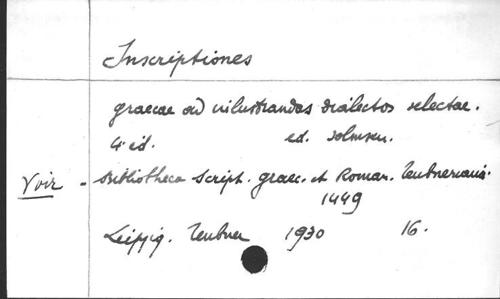 Inscriptiones
graecae ad inlustrandas dialectos selectae.
4 éd. ed. Solmsen.
Voir - Bibliotheca script. graec. et Roman. Teubneriana.
1449
Leipzig. Teubner 1930 16.